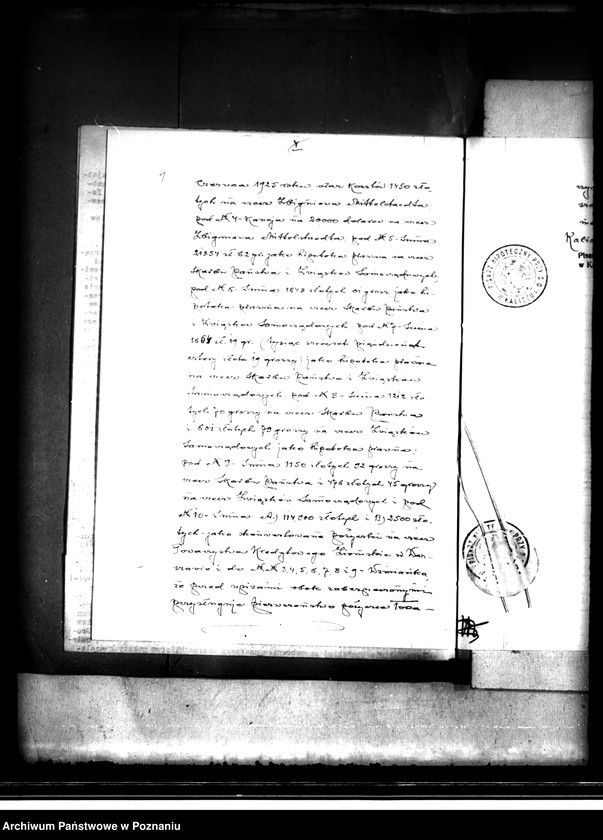 V
czerwca 1925 roku oraz kosztów 1450 zło-
tych na rzecz Zbigniewa Mittelstaedta
pod № 4 - kaucja na 20000 dolarów na rzecz
Zbigniewa Mittelstaedta pod № 5 - suma
21354 zł. 62 gr. jako hipoteka prawna na rzecz
Skarbu Państwa i Związków Samorządowych,
pod № 6 - suma 1648 złotych 01 grosz jako hi-
poteka prawna na rzecz Skarbu Państwa
i Związków Samorządowych pod № 7 - suma
zł. 19 gr. (tysiąc sześćset pięćdziesiąt
cztery złote 19 groszy) jako hipoteka prawna
na rzecz Skarbu Państwa i Związków
Samorządowych pod № 8 - suma 1212 zło-
tych 70 groszy na rzecz Skarbu Państwa
i 601 złotych 79 groszy na rzecz Związków
Samorządowych jako hipoteka prawna;
pod № 9 - suma 1150 złotych 92 groszy na
rzecz Skarbu Państwa i 476 złotych 45 groszy
na rzecz Związków Samorządowych i pod
№ 10 - suma A) 114,000 złotych i B) 2500 zło-
tych jako skonwertowana pożyczka na rzecz
Towarzystwa Kredytowego Ziemskiego w War-
szawie i do №№ 3, 4, 5, 6, 7, 8 i 9 - Wzmianka,
że przed wpisami obok zabezpieczonymi
przysługuje pierwszeństwo pożyczce Towa-
Kalis
Pisa
w K
PISARZ HIPOTECZNY PRZY
W KALISZU
Archiwum Państwowe w Poznaniu